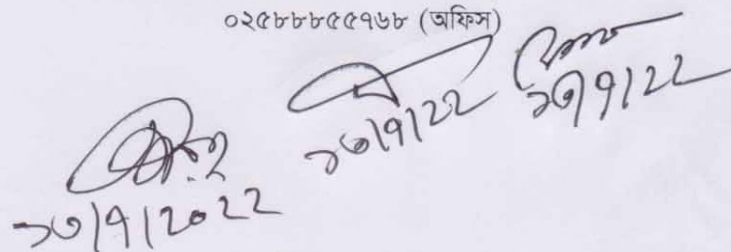 ০২৫৮৮৮৫৫৭৬৮ (অফিস)
১৩/৭/২২
১৩/৭/২২
১৩/৭/2০22